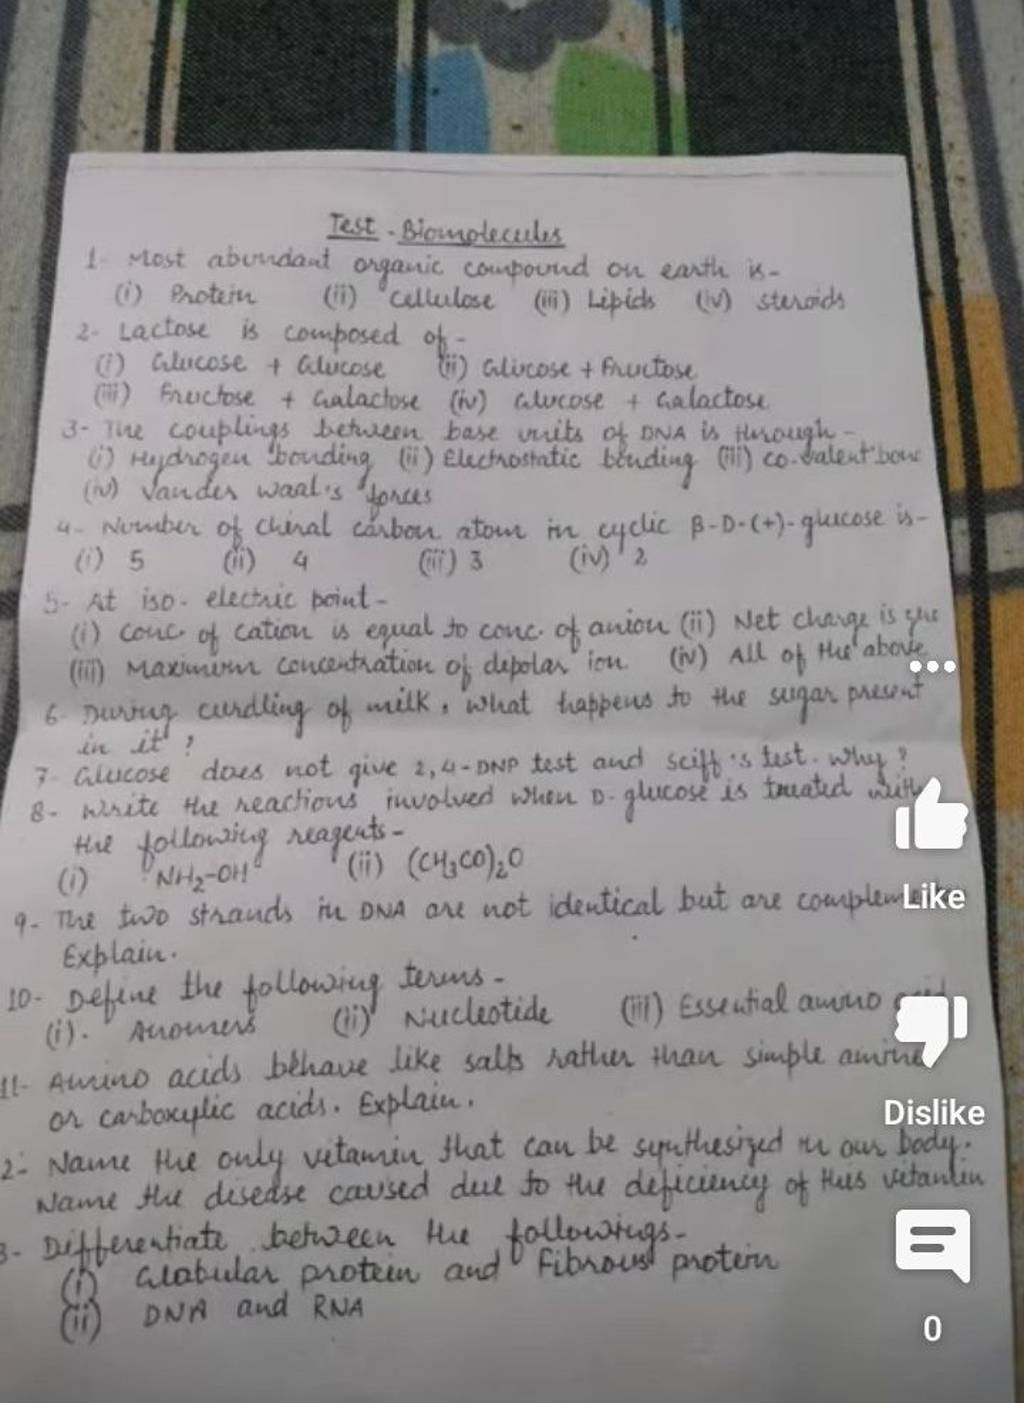 Test - Biomolecules
1- Most abundant organic compound on earth is-
(i) Protein (ii) Cellulose (iii) Lipids (iv) steroids
2- Lactose is composed of -
(i) Glucose + Glucose (ii) Glucose + Fructose
(iii) Fructose + Galactose (iv) Glucose + Galactose
3- The couplings between base units of DNA is through -
(i) Hydrogen bonding (ii) Electrostatic bonding (iii) co-valent bond
(iv) Vander waal's forces
4- Number of chiral carbon atom in cyclic β-D-(+)-glucose is-
(i) 5 (ii) 4 (iii) 3 (iv) 2
5- At iso-electric point-
(i) Conc. of cation is equal to conc. of anion (ii) Net charge is
(iii) Maximum concentration of dipolar ion (iv) All of the above
6- During curdling of milk, what happens to the sugar present
in it ?
7- Glucose does not give 2,4-DNP test and sciff's test. Why?
8- Write the reactions involved when D-glucose is treated with
the following reagents-
(i) NH2-OH (ii) (CH3CO)2O
9- The two strands in DNA are not identical but are
Explain.
10- Define the following terms-
(i). Anomers (ii) Nucleotide (iii) Essential amino
11- Amino acids behave like salts rather than simple amine
or carboxylic acids. Explain.
2- Name the only vitamin that can be synthesized in our body.
Name the disease caused due to the deficiency of this vitamin
3- Differentiate between the followings-
(i) Globular protein and Fibrous protein
(ii) DNA and RNA
Like
Dislike
0